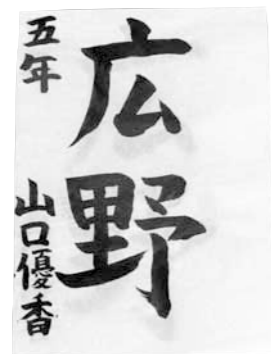 広野
五年
山口優香